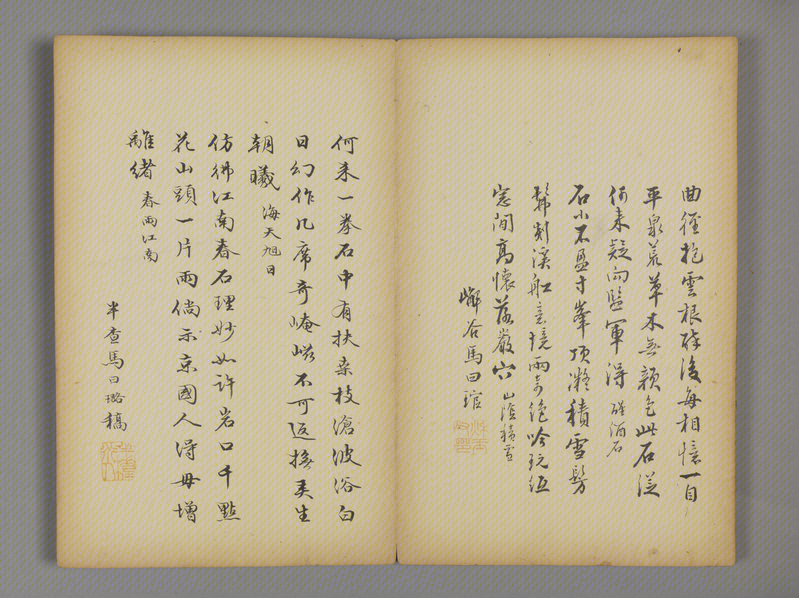 曲徑抱雲根醉後每相憶一自
平泉荒草木無顏色此石從
何来疑向監軍得 醒酒石
石小不盈寸峯頂凝積雪髣
髴剡溪舡意境兩奇絶吟玩恆
窓間高懷落巖穴 山陰積雪
嶰谷馬曰琯
何来一拳石中有扶桑枝滄波浴白
日幻作几席奇崦嵫不可返撫弄生
朝曦 海天旭日
仿彿江南春石理妙如許岩口千點
花山頭一片雨倘示京國人得毋增
離緒 春雨江南
半查馬曰璐稿